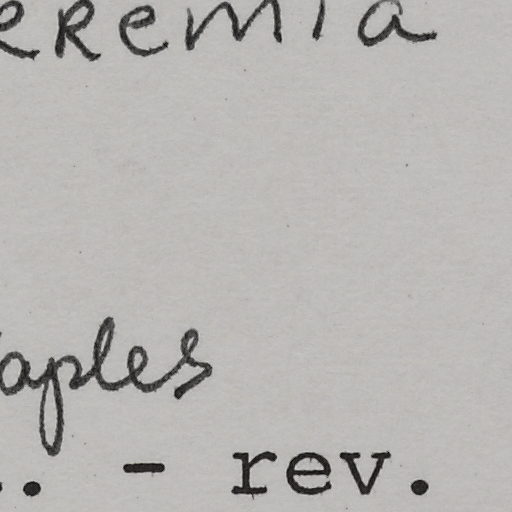 eremia
aples
.. - rev.